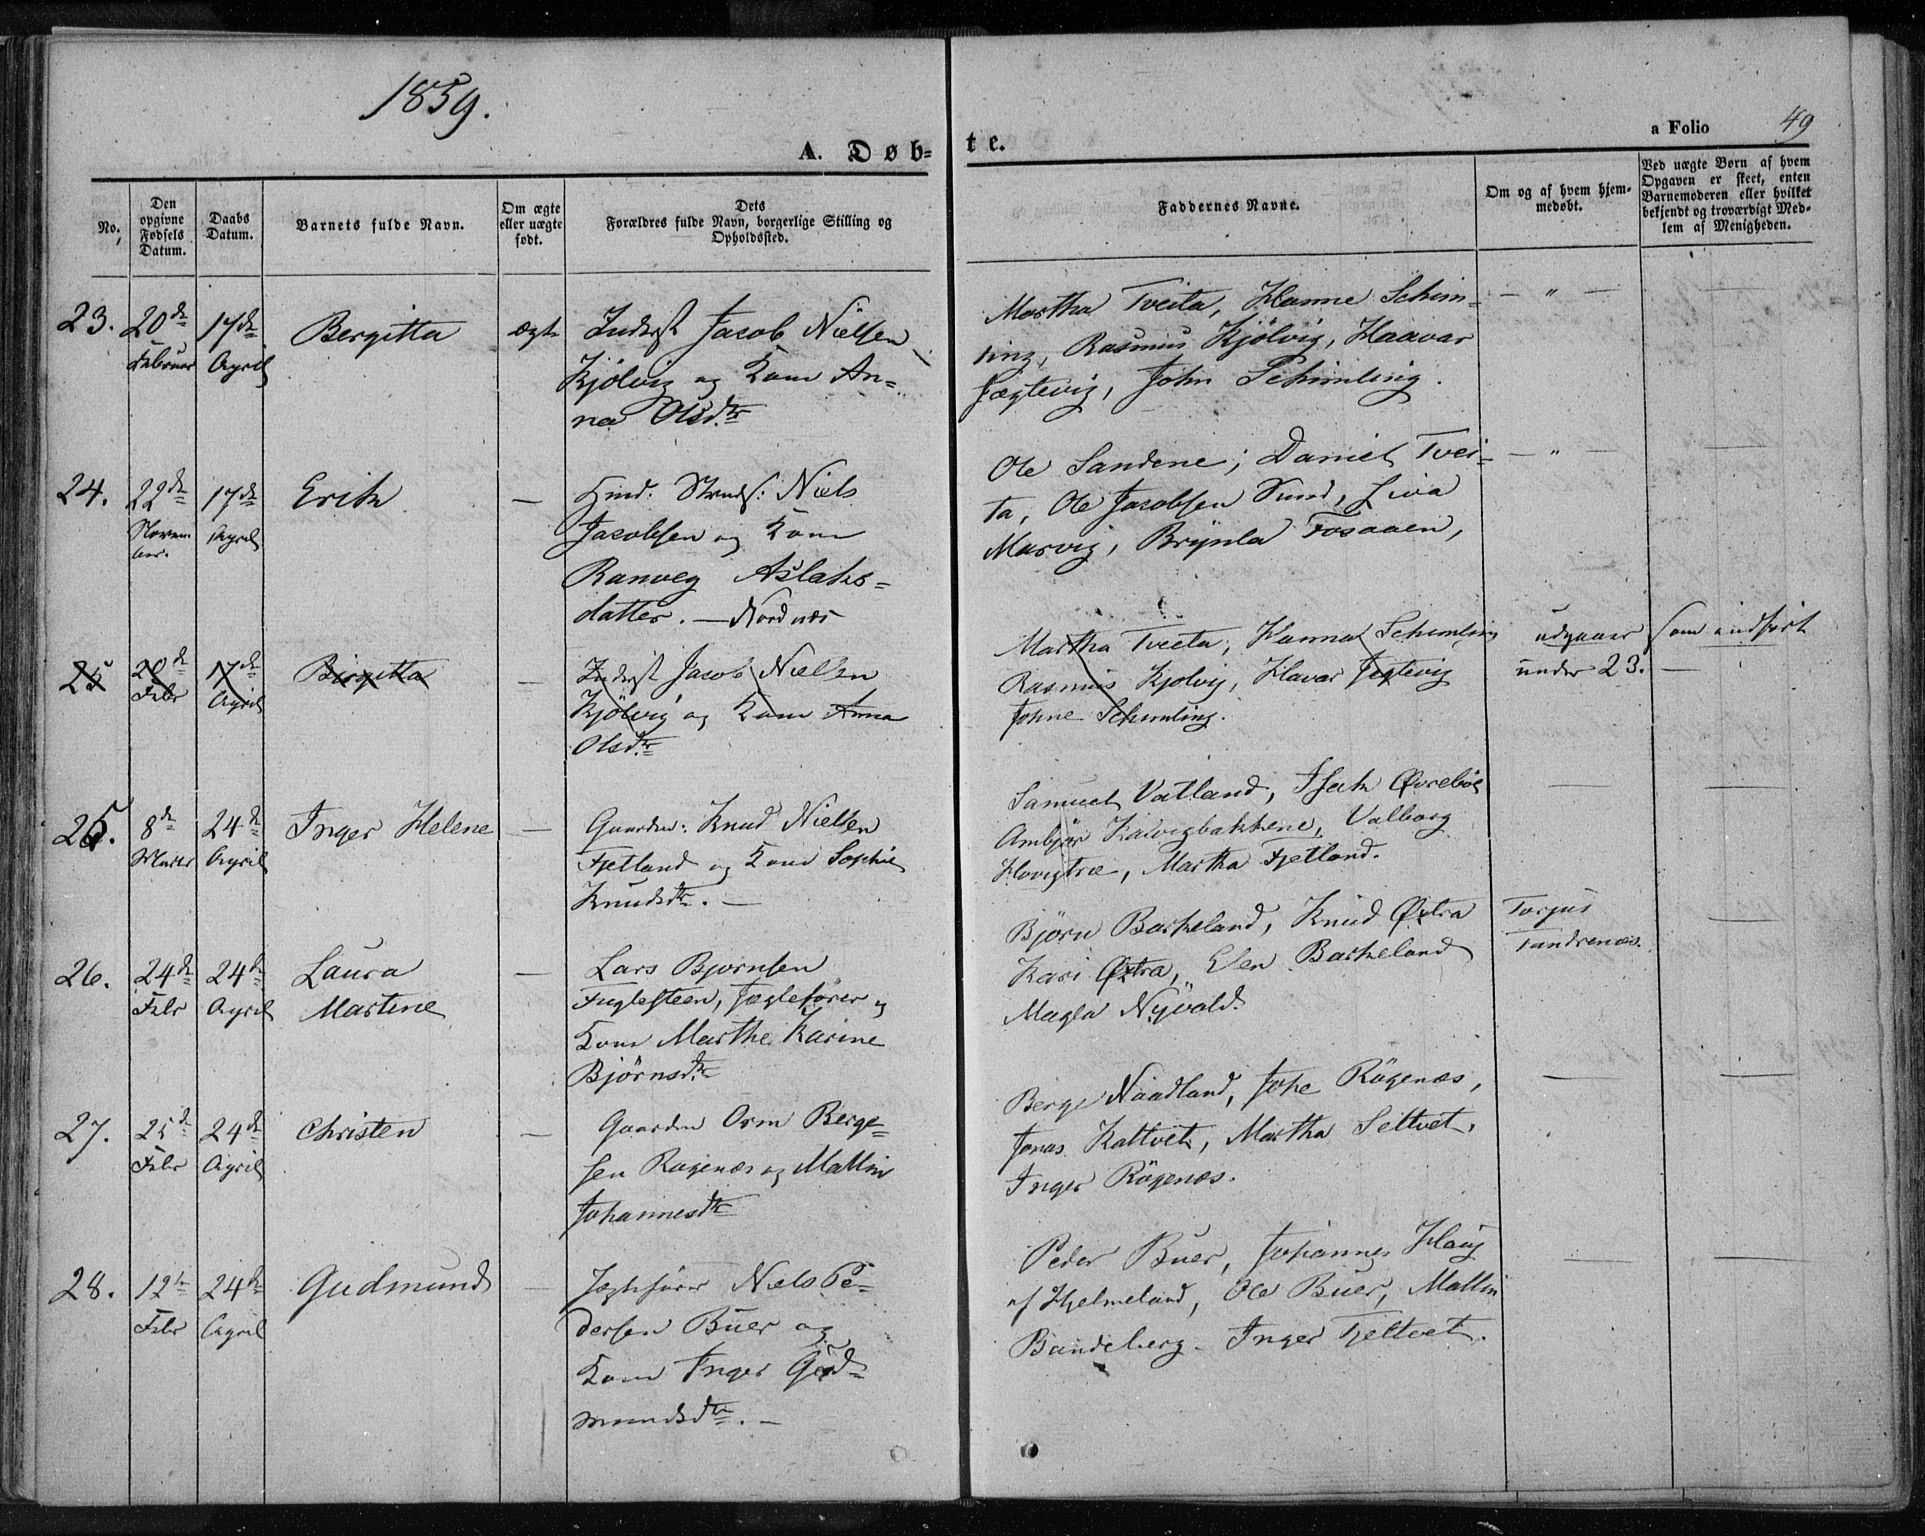 1859.
A. Døb-
te.
a Folio 49
No.
Den opgivne Fødsels Datum.
Daabs Datum.
Barnets fulde Navn.
Om ægte eller uægte født.
Dets Forældres fulde Navn, borgerlige Stilling og Opholdssted.
Faddernes Navne.
Om og af hvem hjemmedøbt.
Ved uægte Børn af hvem Opgaven er skeet, enten Barnemoderen eller hvilket bekjendt og troværdigt Medlem af Menigheden.
23. 20de Februar 17de April Bergitta ægte
Inderst Jacob Nielsen
Kjölvig og Kone An-
na Olsdtr
Martha Tveita, Hanne Schim-
ling, Rasmus Kjölvig, Haavar
Jægtevig, John Schimling.
— " —
24. 22de November 17de April Erik —
Huusm: Strands: Niels
Jacobsen og Kone
Ranveg Aslaks-
datter. — Nordnæs
Ole Sandene; Daniel Tvei-
ta, Ole Jacobsen Sund, Siva
Marvig, Brynla Fosaaen,
— " —
25 20de Febr 17de April Birgitta —
Inderst Jacob Nielsen
Kjölvig og Kone Anna
Olsdtr
Martha Tveita, Hanna Schimling
Rasmus Kjolvig, Havar Jegtevig
Johne Schimling.
udgaaer som indfört
under 23. —
25. 8de Marts 24de April Inger Helene —
Gaardm: Knud Nielsen
Fjetland og Kone Sophie
Knudsdtr. —
Samuel Vatland, Isak Øvreböe
Ambjör Kalvigbakkene, Valborg
Hovigtræ, Martha Fjetland.
26. 24de Febr 24de April Laura
Martine —
Lars Bjornsen
Fuglesteen, Jægtefører og
Kone Marthe Karine
Björnsdtr
Björn Barkeland, Knud Øxtra
Kari Øxtra, Elen Barkeland
Magla Nyvold.
Torjus
Tundrenæs.
27. 25de Febr 24de April Christen —
Gaardm Orm Berge-
sen Ragenæs og Mallin
Johannesdtr
Berge Naadland, Johe Rögenæs,
Jonas Kaltvet, Martha Seltvet,
Inger Rögenæs.
28. 12te Febr 24de April Gudmund —
Jægtefører Niels Pe-
dersen Buer og
Kone Inger Gud-
mundsdtr. —
Peder Buer, Johannes Haug
af Hjelmeland, Ole Buer, Mallin
Bandeberg. Inger Fjeltvet.